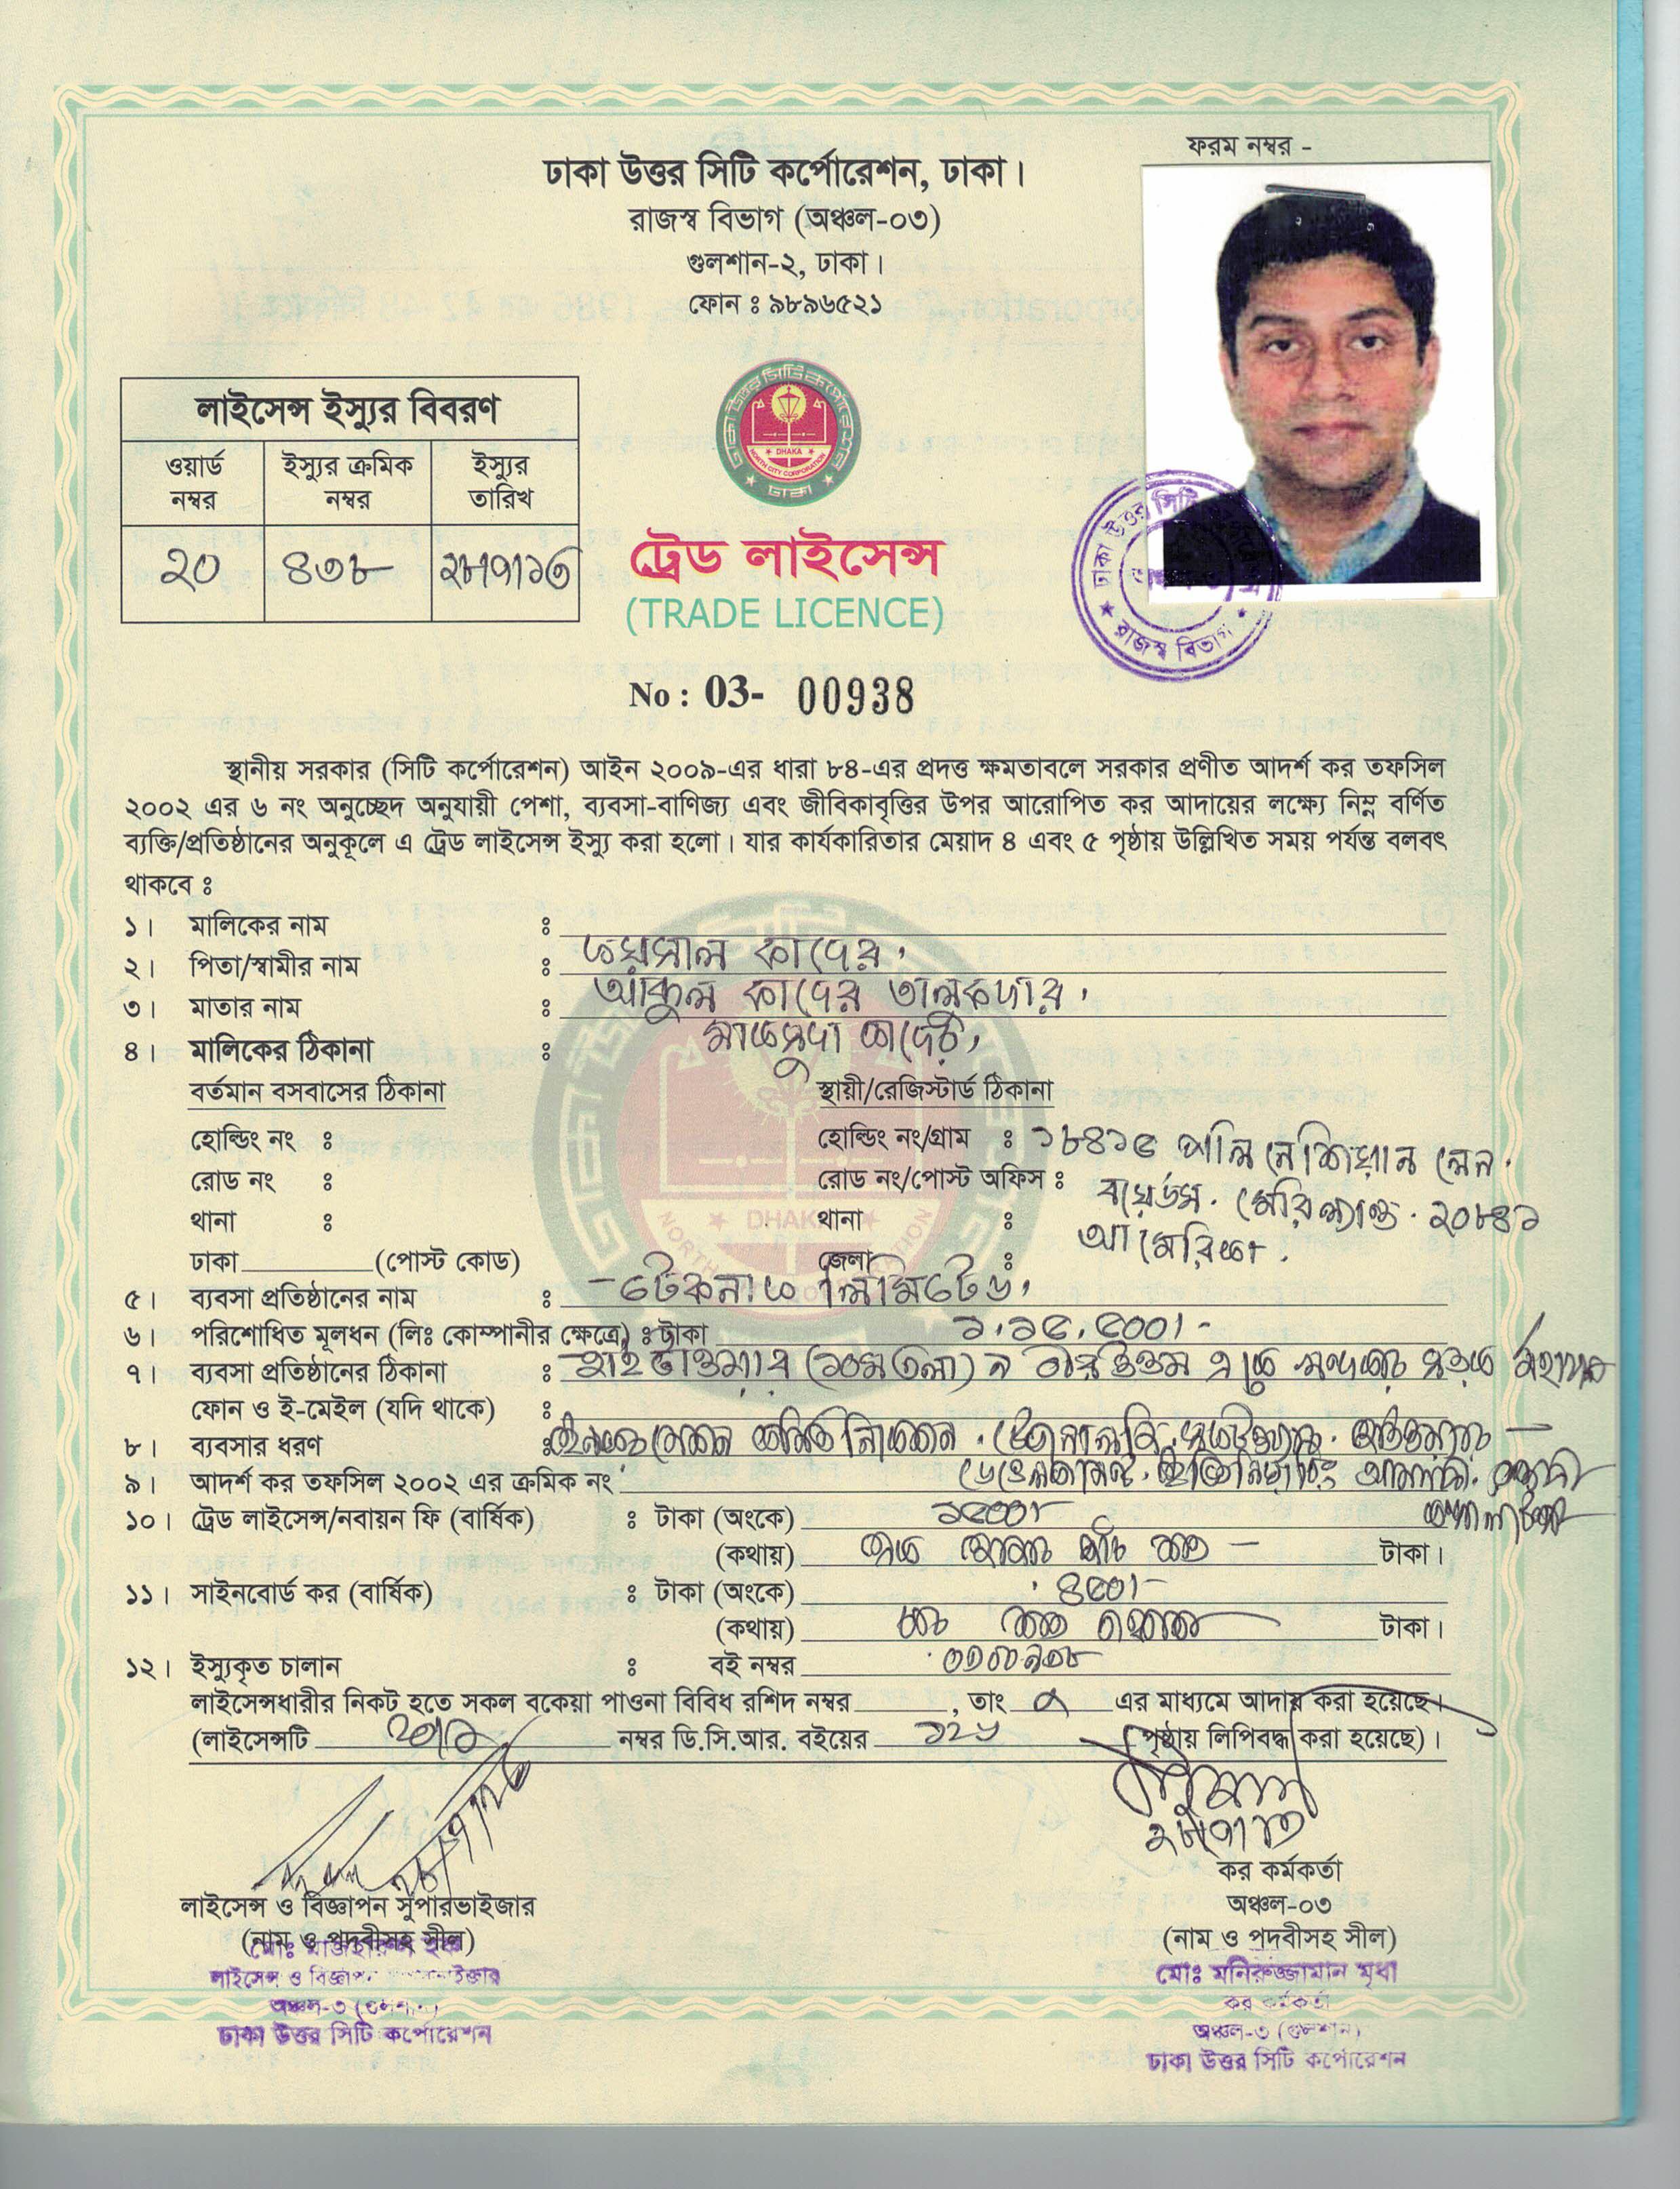 ফরম নম্বর -
ঢাকা উত্তর সিটি কর্পোরেশন, ঢাকা।
রাজস্ব বিভাগ (অঞ্চল-০৩)
গুলশান-২, ঢাকা।
ফোন ঃ ৯৮৯৬৫২১
লাইসেন্স ইস্যুর বিবরণ
ওয়ার্ড নম্বর
ইস্যুর ক্রমিক নম্বর
ইস্যুর তারিখ
২০
৪৩৮
২৮/৭/১৩
ঢাকা উত্তর সিটি কর্পোরেশন
DHAKA
NORTH CITY CORPORATION
ঢাকা
ট্রেড লাইসেন্স
(TRADE LICENCE)
ঢাকা উত্তর সিটি
রাজস্ব বিভাগ
No : 03- 00938
স্থানীয় সরকার (সিটি কর্পোরেশন) আইন ২০০৯-এর ধারা ৮৪-এর প্রদত্ত ক্ষমতাবলে সরকার প্রণীত আদর্শ কর তফসিল
২০০২ এর ৬ নং অনুচ্ছেদ অনুযায়ী পেশা, ব্যবসা-বাণিজ্য এবং জীবিকাবৃত্তির উপর আরোপিত কর আদায়ের লক্ষ্যে নিম্ন বর্ণিত
ব্যক্তি/প্রতিষ্ঠানের অনুকূলে এ ট্রেড লাইসেন্স ইস্যু করা হলো। যার কার্যকারিতার মেয়াদ ৪ এবং ৫ পৃষ্ঠায় উল্লিখিত সময় পর্যন্ত বলবৎ
থাকবে ঃ
১। মালিকের নাম ঃ ফয়সাল কাদের,
২। পিতা/স্বামীর নাম ঃ কাদের তালুকদার,
৩। মাতার নাম ঃ কাদের,
৪। মালিকের ঠিকানা ঃ
বর্তমান বসবাসের ঠিকানা স্থায়ী/রেজিস্টার্ড ঠিকানা
হোল্ডিং নং ঃ হোল্ডিং নং/গ্রাম ঃ ১৮৪১৫ পলিনেশিয়ান লেন.
রোড নং ঃ রোড নং/পোস্ট অফিস ঃ বয়েডস. মেরিল্যান্ড. ২০৮৪১
থানা ঃ থানা ঃ আমেরিকা.
ঢাকা (পোস্ট কোড) জেলা ঃ
৫। ব্যবসা প্রতিষ্ঠানের নাম ঃ টেকনাফ লিমিটেড,
৬। পরিশোধিত মূলধন (লিঃ কোম্পানীর ক্ষেত্রে) ঃ টাকা ১,১৫,৫০০/-
৭। ব্যবসা প্রতিষ্ঠানের ঠিকানা ঃ টাওয়ার (১০ম তলা) ৯ বীর উত্তম এ কে খন্দকার সড়ক মহাখালী
ফোন ও ই-মেইল (যদি থাকে) ঃ
৮। ব্যবসার ধরণ ঃ
৯। আদর্শ কর তফসিল ২০০২ এর ক্রমিক নং
১০। ট্রেড লাইসেন্স/নবায়ন ফি (বার্ষিক) ঃ টাকা (অংকে) ১৫০০/-
(কথায়) এক হাজার পাঁচ শত টাকা।
১১। সাইনবোর্ড কর (বার্ষিক) ঃ টাকা (অংকে) ৪৫০/-
(কথায়) চার শত পঞ্চাশ টাকা।
১২। ইস্যুকৃত চালান ঃ বই নম্বর
লাইসেন্সধারীর নিকট হতে সকল বকেয়া পাওনা বিবিধ রশিদ নম্বর , তাং এর মাধ্যমে আদায় করা হয়েছে।
(লাইসেন্সটি নম্বর ডি.সি.আর. বইয়ের পৃষ্ঠায় লিপিবদ্ধ করা হয়েছে)।
লাইসেন্স ও বিজ্ঞাপন সুপারভাইজার
(নাম ও পদবীসহ সীল)
লাইসেন্স ও বিজ্ঞাপন
অঞ্চল-৩ (গুলশান)
ঢাকা উত্তর সিটি কর্পোরেশন
কর কর্মকর্তা
অঞ্চল-০৩
(নাম ও পদবীসহ সীল)
মোঃ মনিরুজ্জামান মৃধা
কর কর্মকর্তা
অঞ্চল-৩ (গুলশান)
ঢাকা উত্তর সিটি কর্পোরেশন